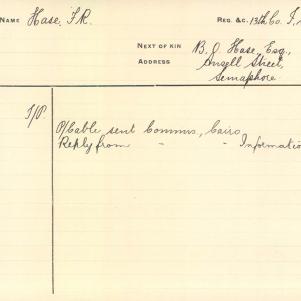 NAME Hase, F.R. REG. &C. 13th Co. I.
NEXT OF KIN B. J. Hase, Esq.,
ADDRESS Ansell Street,
Semaphore
I/P. P/Cable sent Commrs, Cairo
Reply from " " Informatio